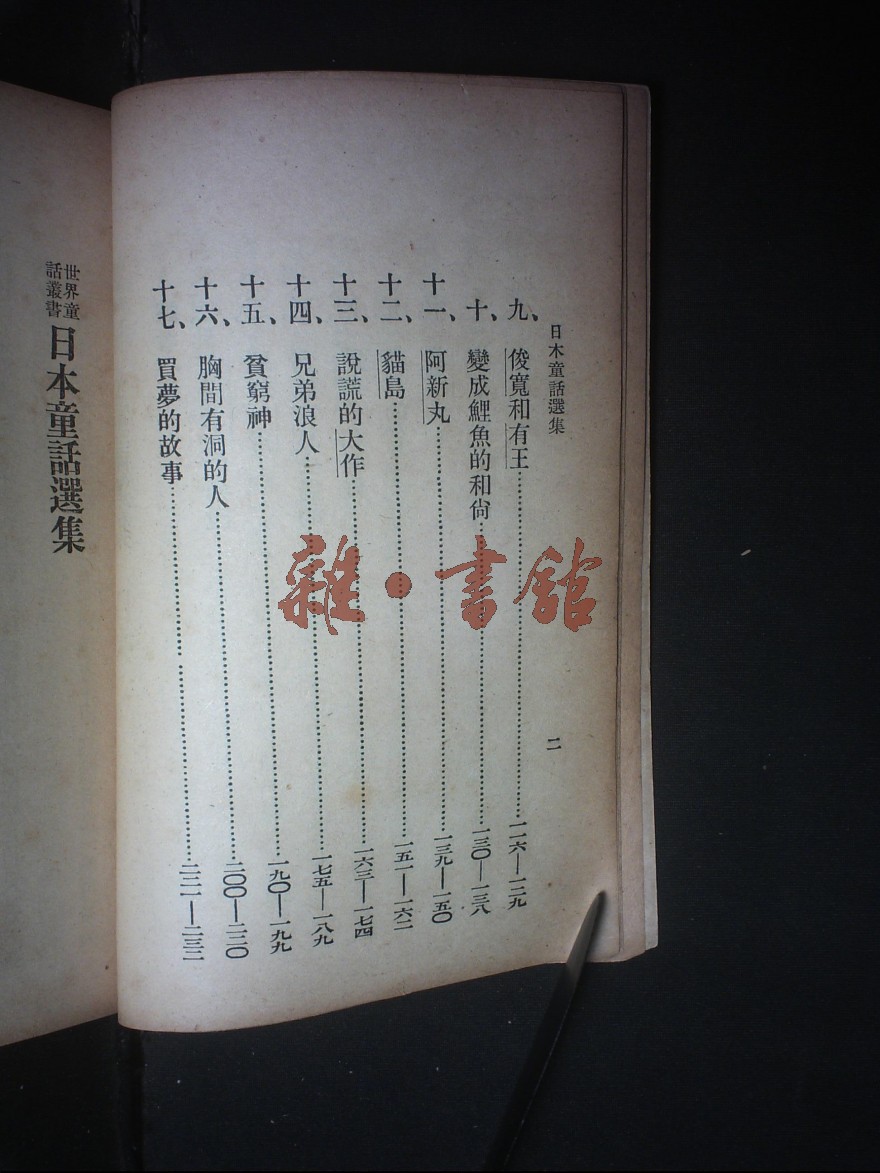 日本童話選集
二
九、俊寬和有王……一一六—一二九
十、變成鯉魚的和尙……一三〇—一三八
十一、阿新丸……一三九—一五〇
十二、貓島……一五一—一六二
十三、說謊的大作……一六三—一七四
十四、兄弟浪人……一七五—一八九
十五、貧窮神……一九〇—一九九
十六、胸間有洞的人……二〇〇—二二〇
十七、買夢的故事……二二一—二三二
世界童
話叢書
日本童話選集
雜·書館